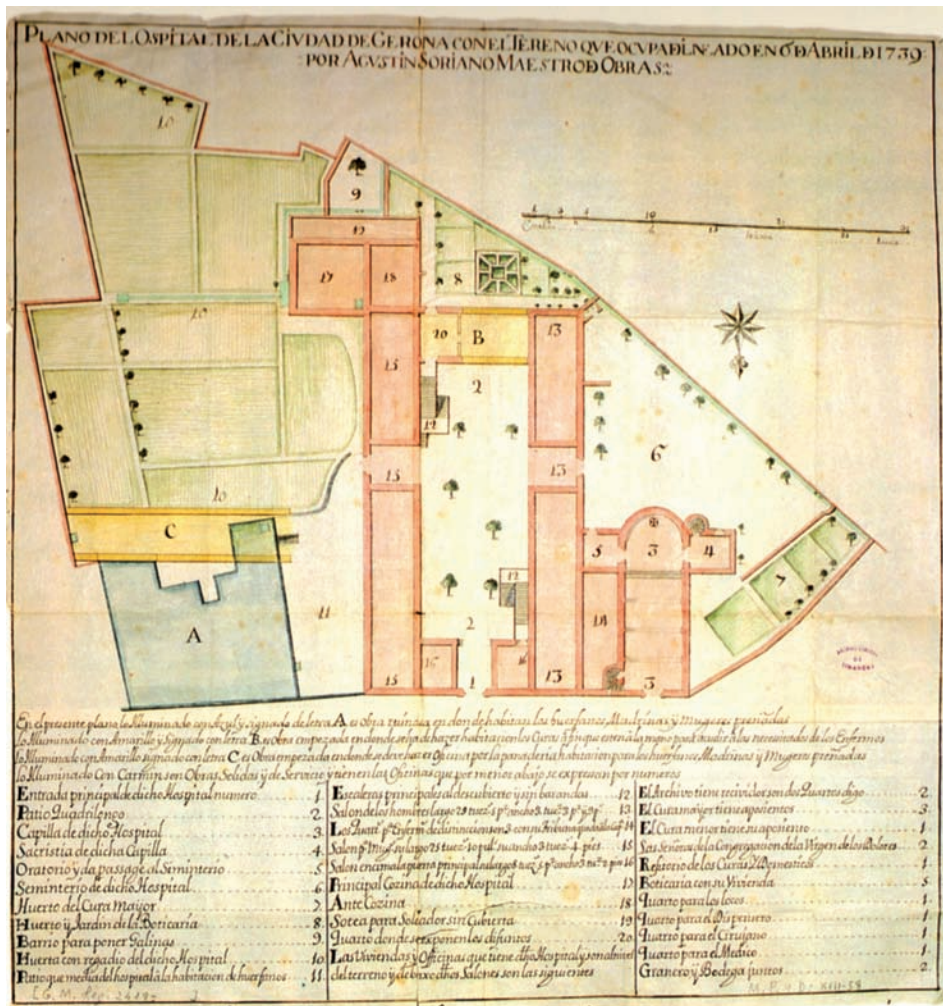 PLANO DEL OSPITAL DE LA CIVDAD DE GERONA CON EL TERENO QVE OCVPA DILNEADO EN 6 D ABRIL D 1739
POR AGVSTIN SORIANO MAESTRO D OBRAS
10
9
19
17
18
8
10
20
B
13
15
2
12
6
15
13
10
C
5
3
4
7
A
11
12
14
2
16
16
15
1
13
3
En el presente plano lo Illuminado con Azul y signado de letra A es obra ruinosa en don de habitan los huerfanos Madrinas y Mugeres preñadas
lo Illuminado con Amarillo y Signado con letra B es Obra empezada en donde se
lo Illuminado con Amarillo signado con letra C es Obra empezada en donde se deve hacer Oficina por la panaderia habitacion para los huerfanos Madrinas y Mugeres preñadas
lo Illuminado Con Carmin son Obras Solidas y de Servicio y tienen las Oficinas que por menor abajo se expresan por numeros
Entrada principal de dicho Hospital numero 1
Patio Quadrilongo 2
Capilla de dicho Hospital 3
Sacristia de dicha Capilla 4
Oratorio y da passage al Siminterio 5
Seminterio de dicho Hospital 6
Huerto del Cura Mayor 7
Huerto y Jardin de la Boticaria 8
Barrio para poner Galinas 9
Huerta con regadio del dicho Hospital 10
Patio que media del hospital a la habitacion de huerfanos 11
Escaleras principales al descubierto y sin barandas 12
Salon de los hombres largo 13
14
15
Salon encima la puerta principal 16
Principal Cozina de dicho Hospital 17
Ante Cozina 18
Sotea para Soleador sin Cubierta 19
Quarto donde se exponen los difuntos 20
Las Viviendas y Officinas que tiene dho Hospital y son
del terreno y debaxo dhos Salones son las siguientes
El Archivo tiene recividor son dos Quartos digo 2
El Cura mayor tiene aposientos 3
El Cura menor tiene su aposiento 1
Las Señoras de la Congregacion de la Virgen de los Dolores 2
Refitorio de los Curas y Domesticos 1
Boticaria con su Vivienda 5
Quarto para los locos 1
Quarto para el Dispensero 1
Quarto para el Cirujano 1
Quarto para el Medico 1
Granero y Bodega juntos 2